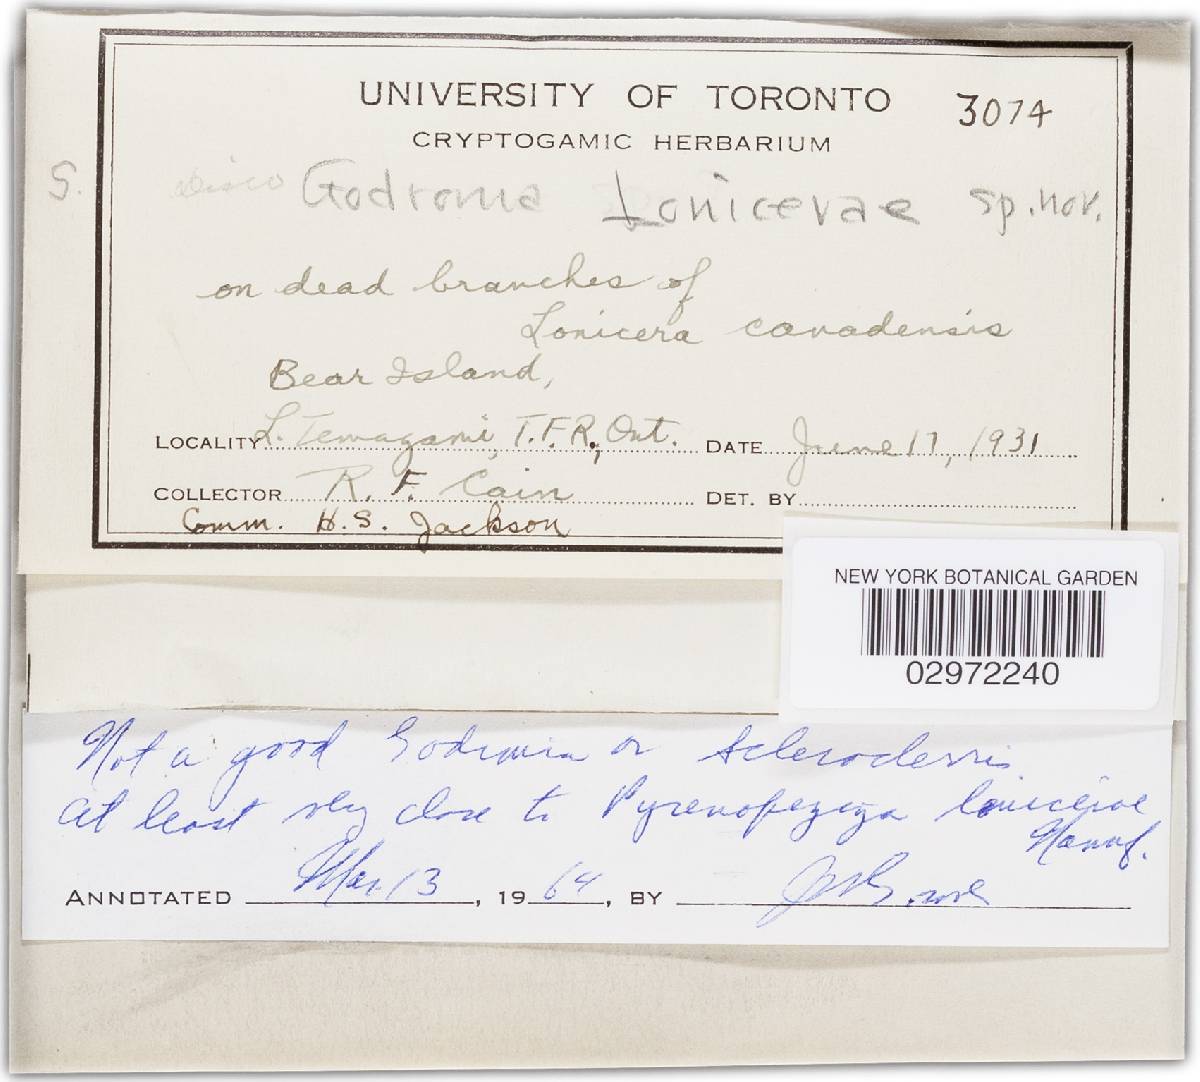 UNIVERSITY OF TORONTO 3074
CRYPTOGAMIC HERBARIUM
S. Disco Godronia Lonicerae sp. nov.
on dead branches of
Lonicera canadensis
Bear Island,
LOCALITY L. Temagami, T.F.R., Ont. DATE June 17, 1931
COLLECTOR R. F. Cain DET. BY
Comm. H.S. Jackson
NEW YORK BOTANICAL GARDEN
02972240
Not a good Godronia or Scleroderris
at least very close to Pyrenopeziza lonicerae
Nannf.
ANNOTATED Mar 13, 1964, BY